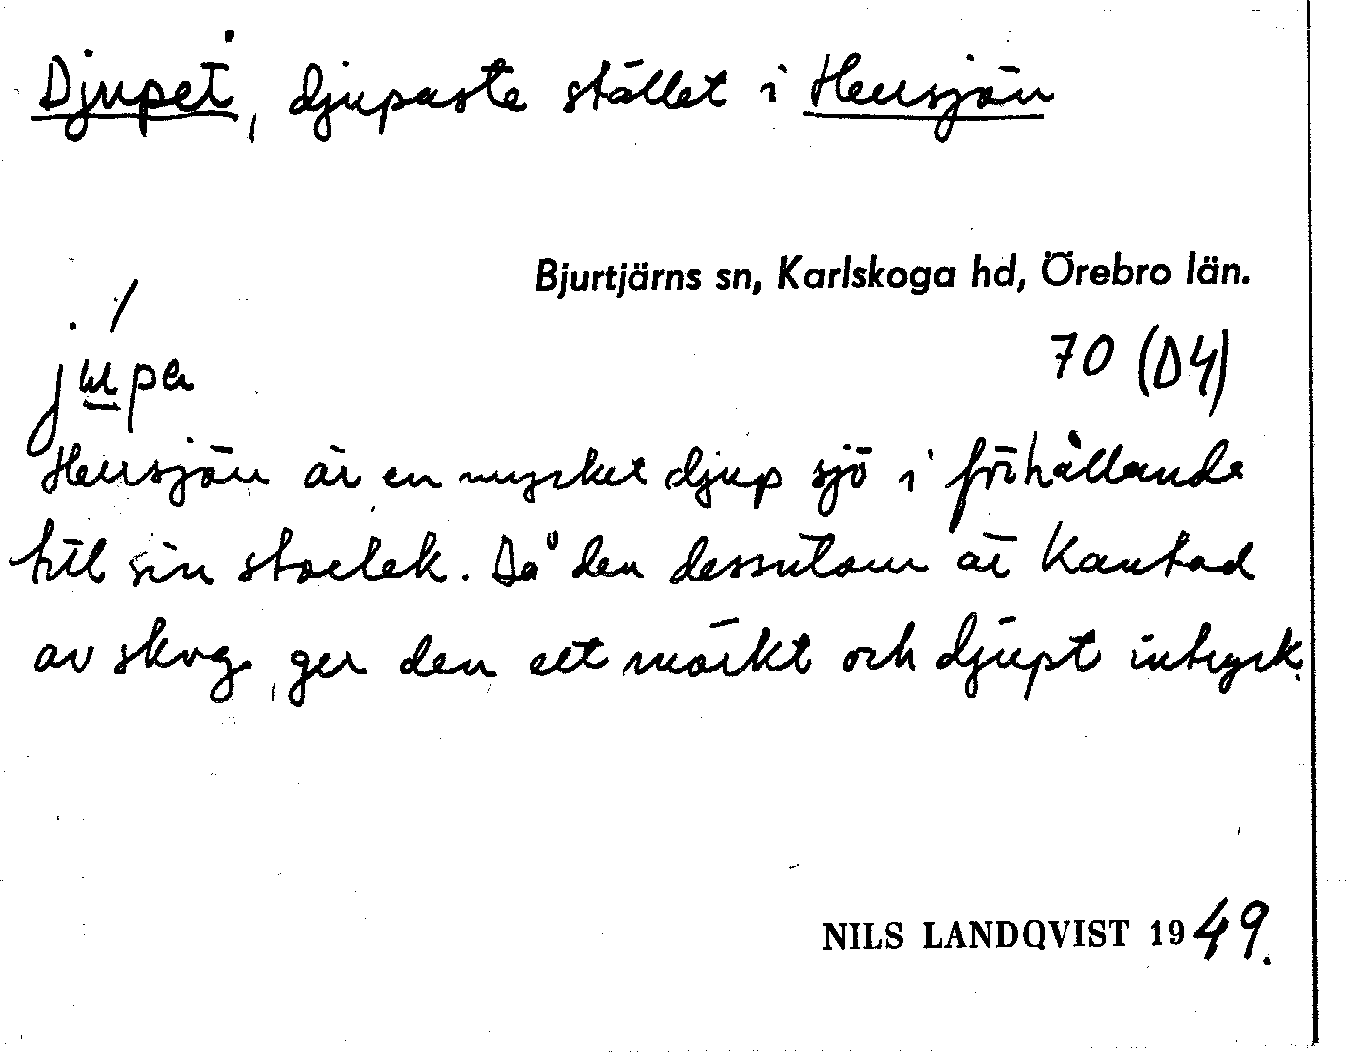 Djupet, djupaste stället i Hersjön
Bjurtjärns sn, Karlskoga hd, Örebro län.
70 (D4)
jupa
Hersjön är en mycket djup sjö i förhållande
till sin storlek. Då den dessutom är kantad
av skog, ger den ett mörkt och djupt intryck.
NILS LANDQVIST 1949.